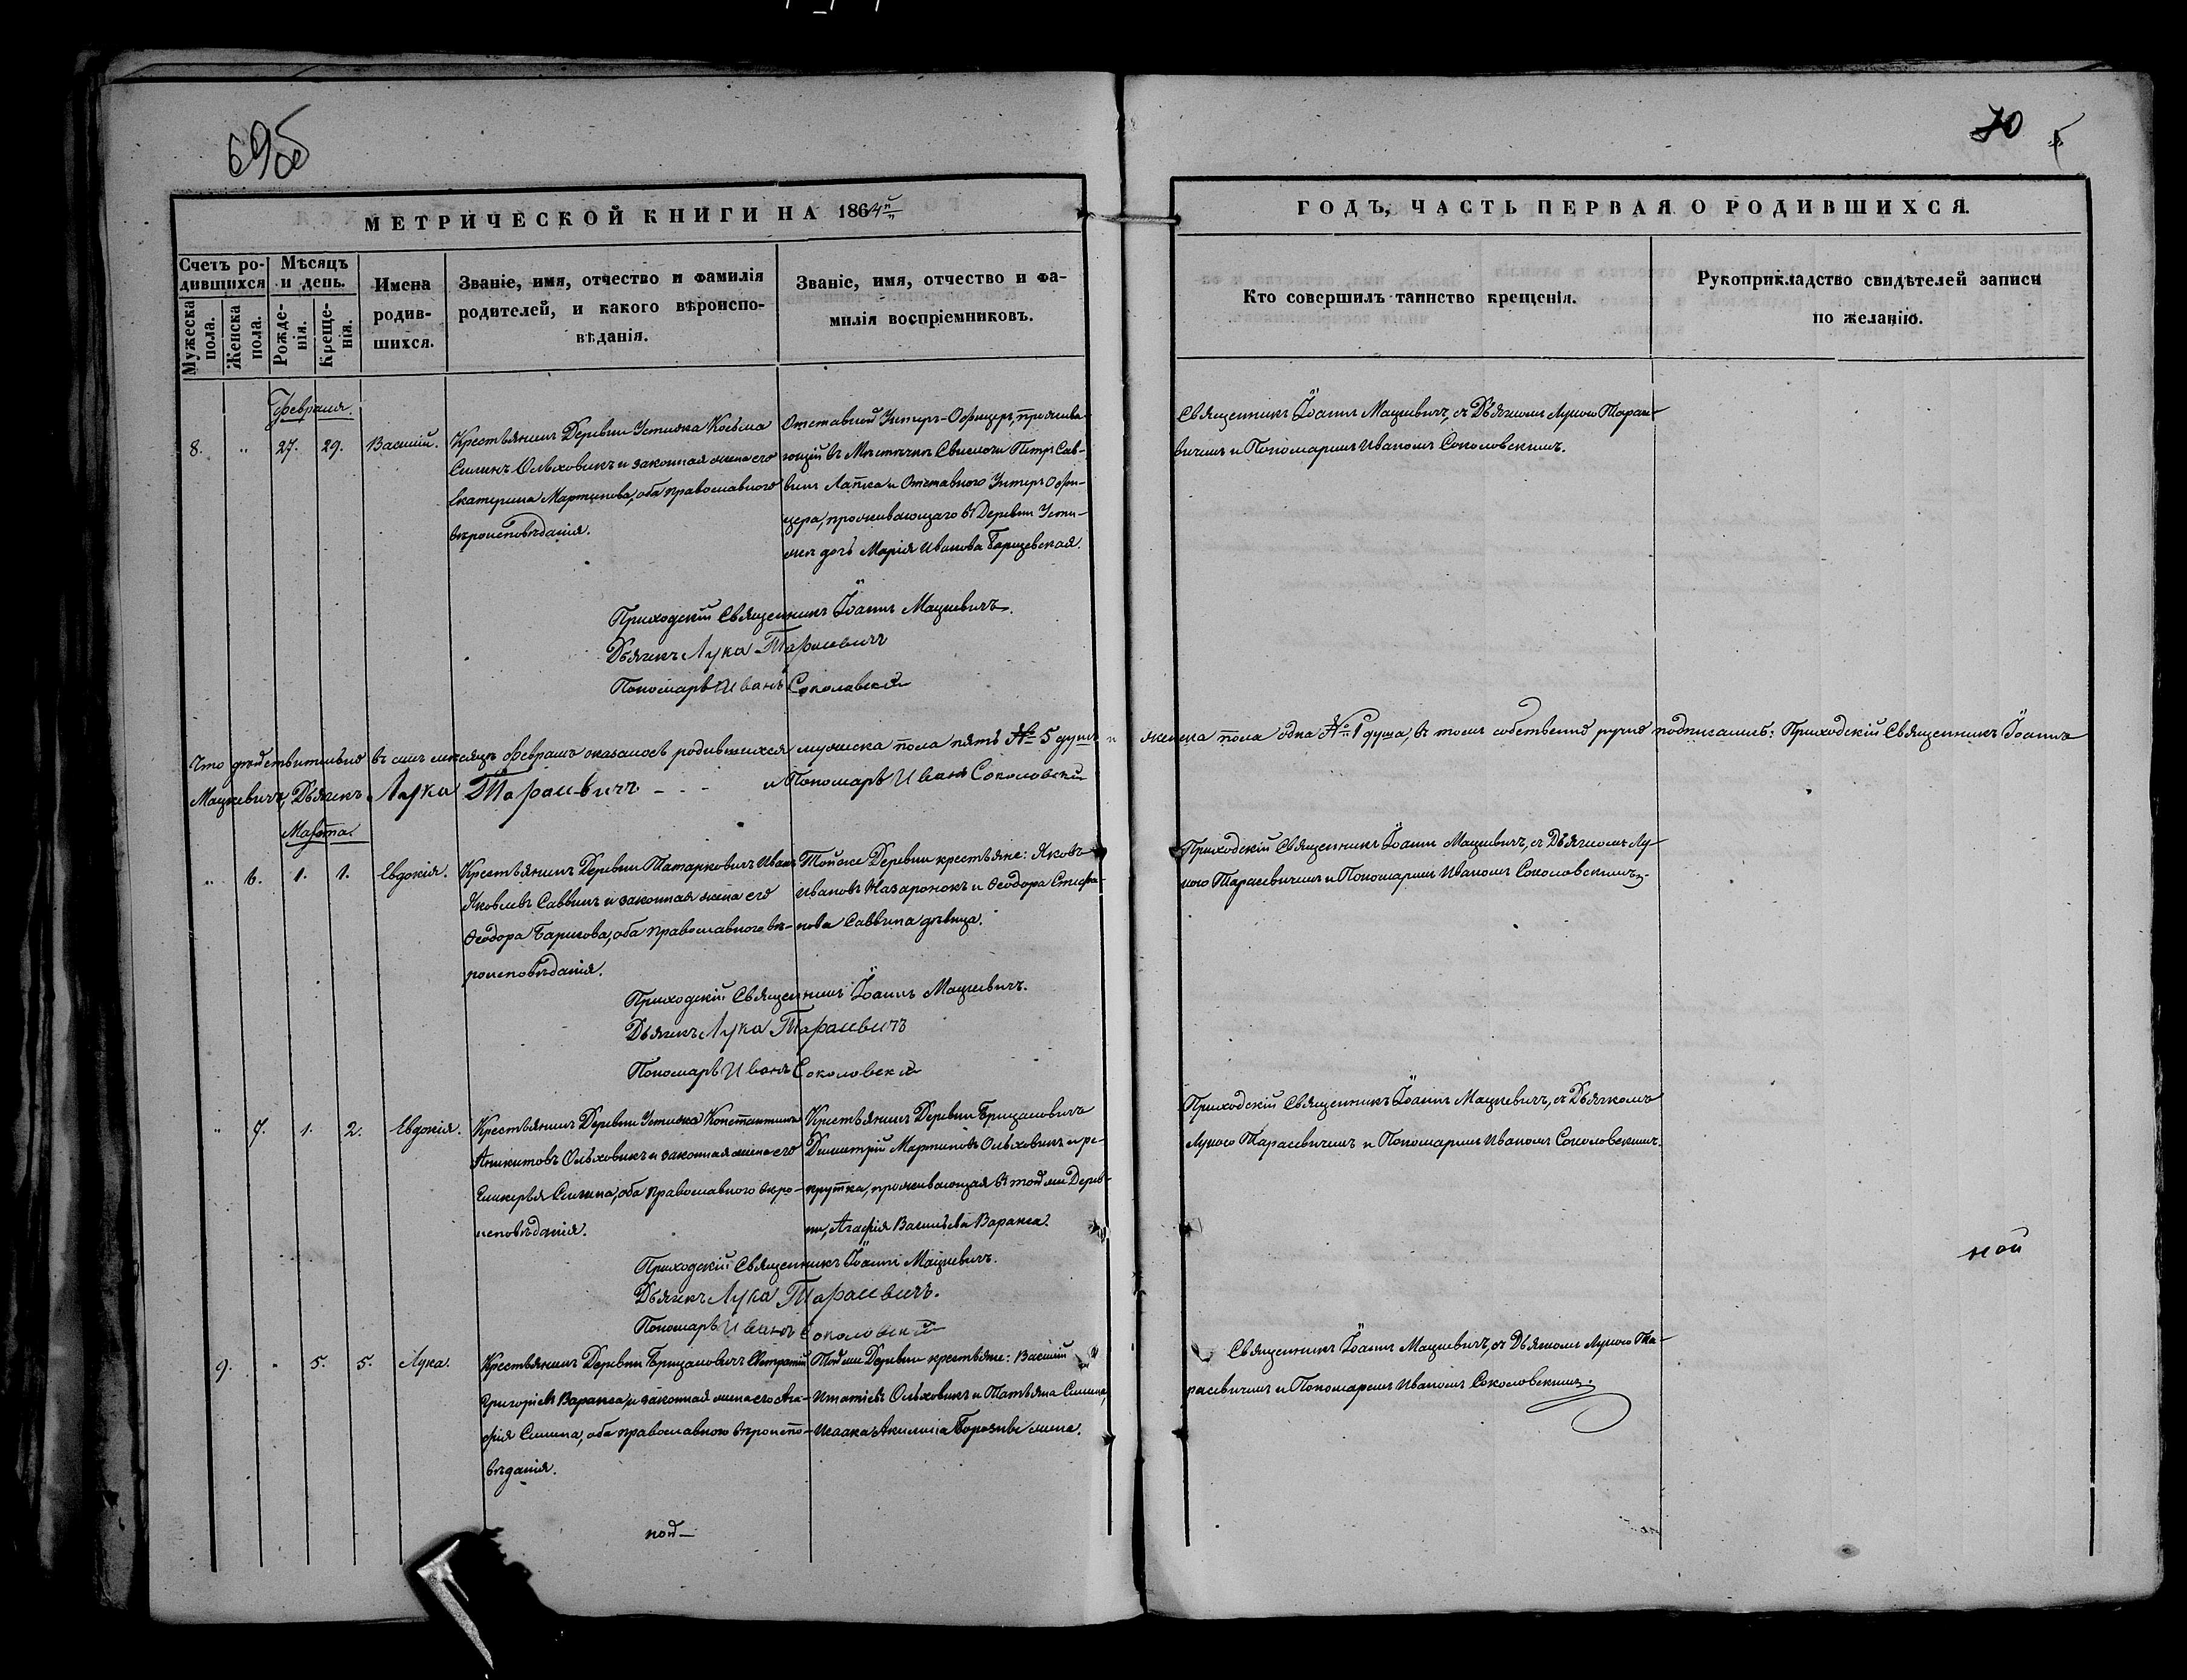 69об
70
МЕТРИЧЕСКОЙ КНИГИ НА 1864й
ГОДЪ, ЧАСТЬ ПЕРВАЯ О РОДИВШИХСЯ.
Счетъ ро-
дившихся
Мужеска
пола.
Женска
пола.
Мѣсяцъ
и день.
Рожде-
нія.
Креще-
нія.
Имена
родив-
шихся.
Званіе, имя, отчество и фамилія
родителей, и какого вѣроиспо-
вѣданія.
Званіе, имя, отчество и фа-
милія воспріемниковъ.
Кто совершилъ таинство крещенія.
Рукоприкладство свидѣтелей записи
по желанію.
Февраля.
8. „ 27. 29. Василій.
Крестьянинъ Деревни Устижа Косьма
Силинъ Ольховикъ и законная жена его
Екатерина Мартинова, оба православнаго
вѣроисповѣданія.
Отставной Унтеръ-Офицеръ, прожива-
ющій въ Мѣстечкѣ Свислочи Петръ Сав-
винъ Лапка и Отставнаго Унтеръ Офи-
цера, проживающаго въ Деревни Усти-
жѣ дочь Марія Иванова Барщевская.
Священникъ Іоаннъ Мацкевичъ, съ Дьячкомъ Лукою Тарасе-
вичемъ и Пономаремъ Иваномъ Соколовскимъ.
Приходскій Священникъ Іоаннъ Мацкевичъ.
Дьячекъ Лука Тарасевичъ
Пономарь Иванъ Соколовскій
Что дѣйствительно въ семъ мѣсяцѣ Февралѣ оказалось родившихся мужеска пола пять № 5 душъ и женска пола одна № 1 душа, въ томъ собственно ручно подписались: Приходскій Священникъ Іоаннъ
Мацкевичъ, Дьячекъ Лука Тарасевичъ - - - и Пономарь Иванъ Соколовскій
Марта.
„ 6. 1. 1. Евдокія.
Крестьянинъ Деревни Татарковичъ Иванъ
Яковлевъ Саввинъ и законная жена его
Ѳеодора Барисова, оба православнаго вѣ-
роисповѣданія.
Тойже Деревни крестьяне: Яковъ
Ивановъ Назаронокъ и Ѳеодора Стефа-
нова Саввина дѣвица.
Приходскій Священникъ Іоаннъ Мацкевичъ, съ Дьячкомъ Лу-
кою Тарасевичемъ и Пономаремъ Иваномъ Соколовскимъ.
Приходскій Священникъ Іоаннъ Мацкевичъ.
Дьячекъ Лука Тарасевичъ
Пономарь Иванъ Соколовскій
„ 7. 1. 2. Евдокія.
Крестьянинъ Деревни Устижа Константинъ
Аникитовъ Ольховикъ и законная жена его
Гликерія Силина, оба православнаго вѣро-
исповѣданія.
Крестьянинъ Деревни Брицаловичъ
Димитрій Мартиновъ Ольховикъ и ре-
крутка, проживающая въ той же Дерев-
ни, Агафія Васильева Варакса.
Приходскій Священникъ Іоаннъ Мацкевичъ, съ Дьячкомъ
Лукою Тарасевичемъ и Пономаремъ Иваномъ Соколовскимъ.
Приходскій Священникъ Іоаннъ Мацкевичъ.
Дьячекъ Лука Тарасевичъ.
Пономарь Иванъ Соколовскій
ной
9. „ 5. 5. Лука.
Крестьянинъ Деревни Брицаловичъ
Григоріевъ Варакса, и законная жена его Ага-
фія Силина, оба православнаго вѣроиспо-
вѣданія.
Той же Деревни крестьяне: Василій
Игнатіевъ Ольховикъ и Татьяна Силина,
Исаака жена.
Священникъ Іоаннъ Мацкевичъ, съ Дьячкомъ Лукою Та-
расевичемъ и Пономаремъ Иваномъ Соколовскимъ.
под-